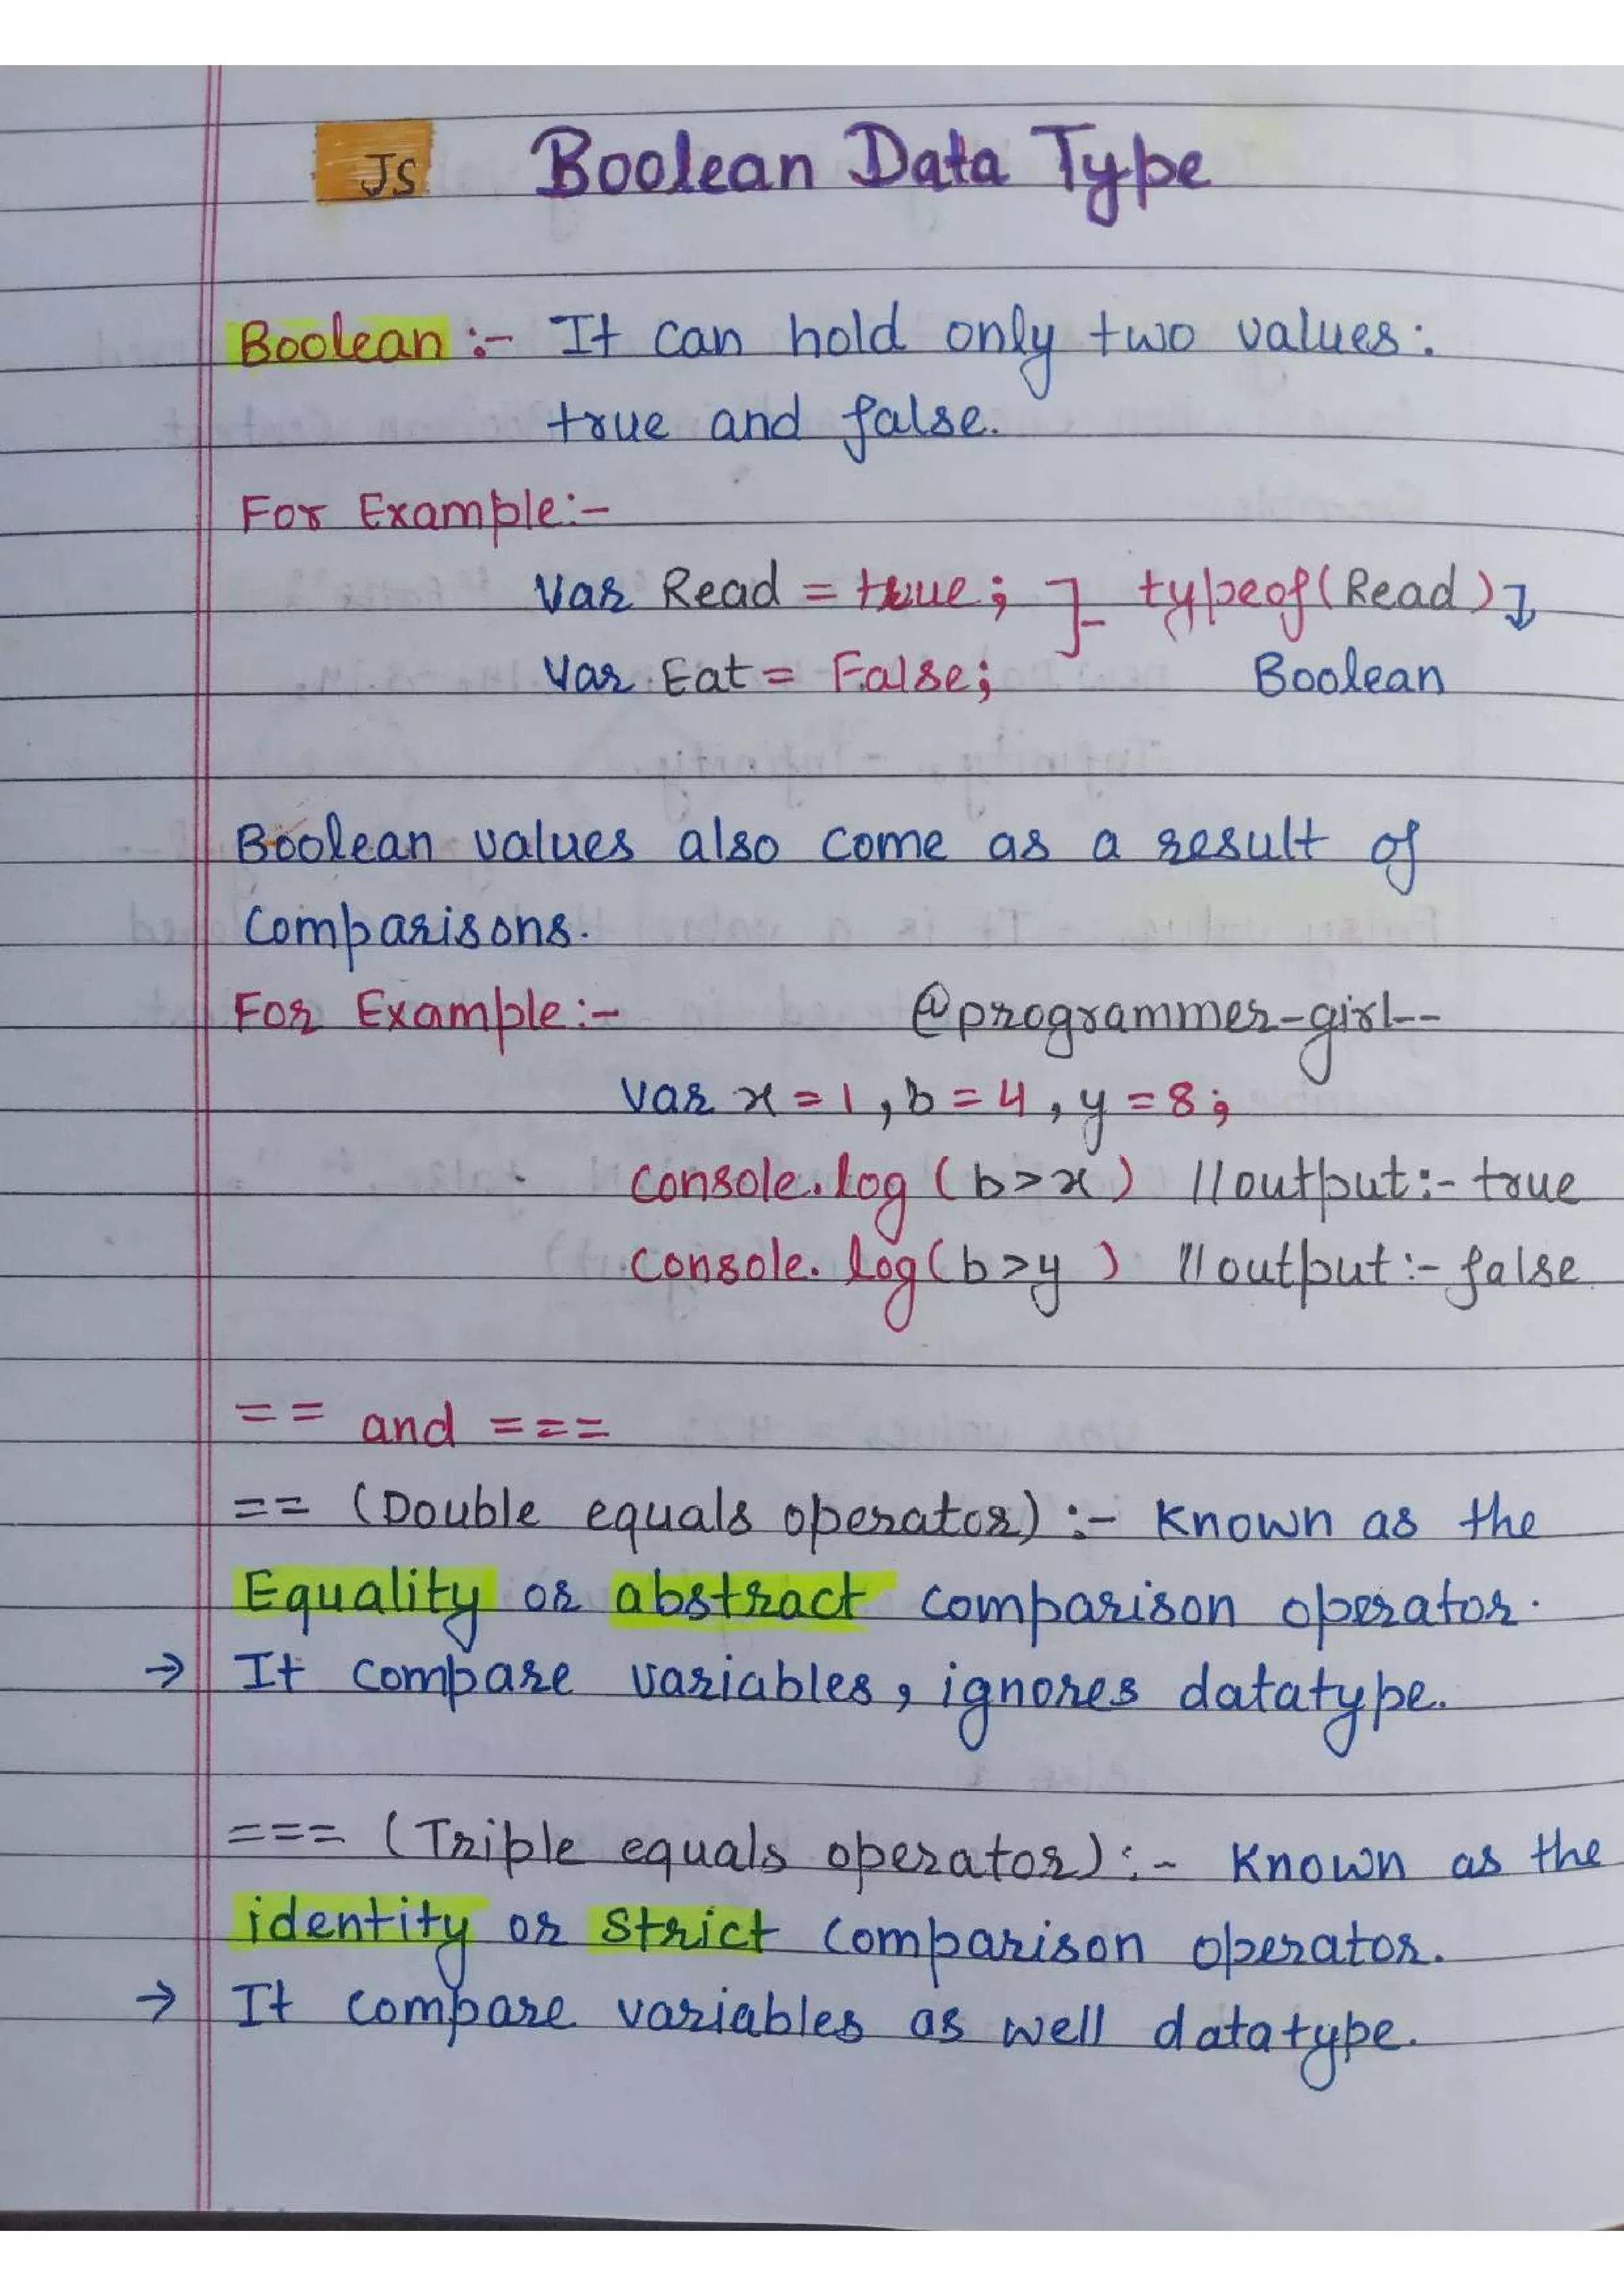 JS Boolean Data Type
Boolean :- It can hold only two values :
true and false.
For Example:-
Var Read = true; ]- typeof(Read)↴
Var Eat = False; Boolean
Boolean values also come as a result of
Comparisons.
For Example:- @programmer-girl--
Var x = 1, b = 4, y = 8;
Console.log (b>x) //output:- true
Console.log(b>y) //output:- false
== and ===
== (Double equals operator) :- Known as the
Equality or abstract comparison operator.
→ It compare variables, ignores datatype.
=== (Triple equals operator) :- Known as the
identity or strict comparison operator.
→ It compare variables as well datatype.